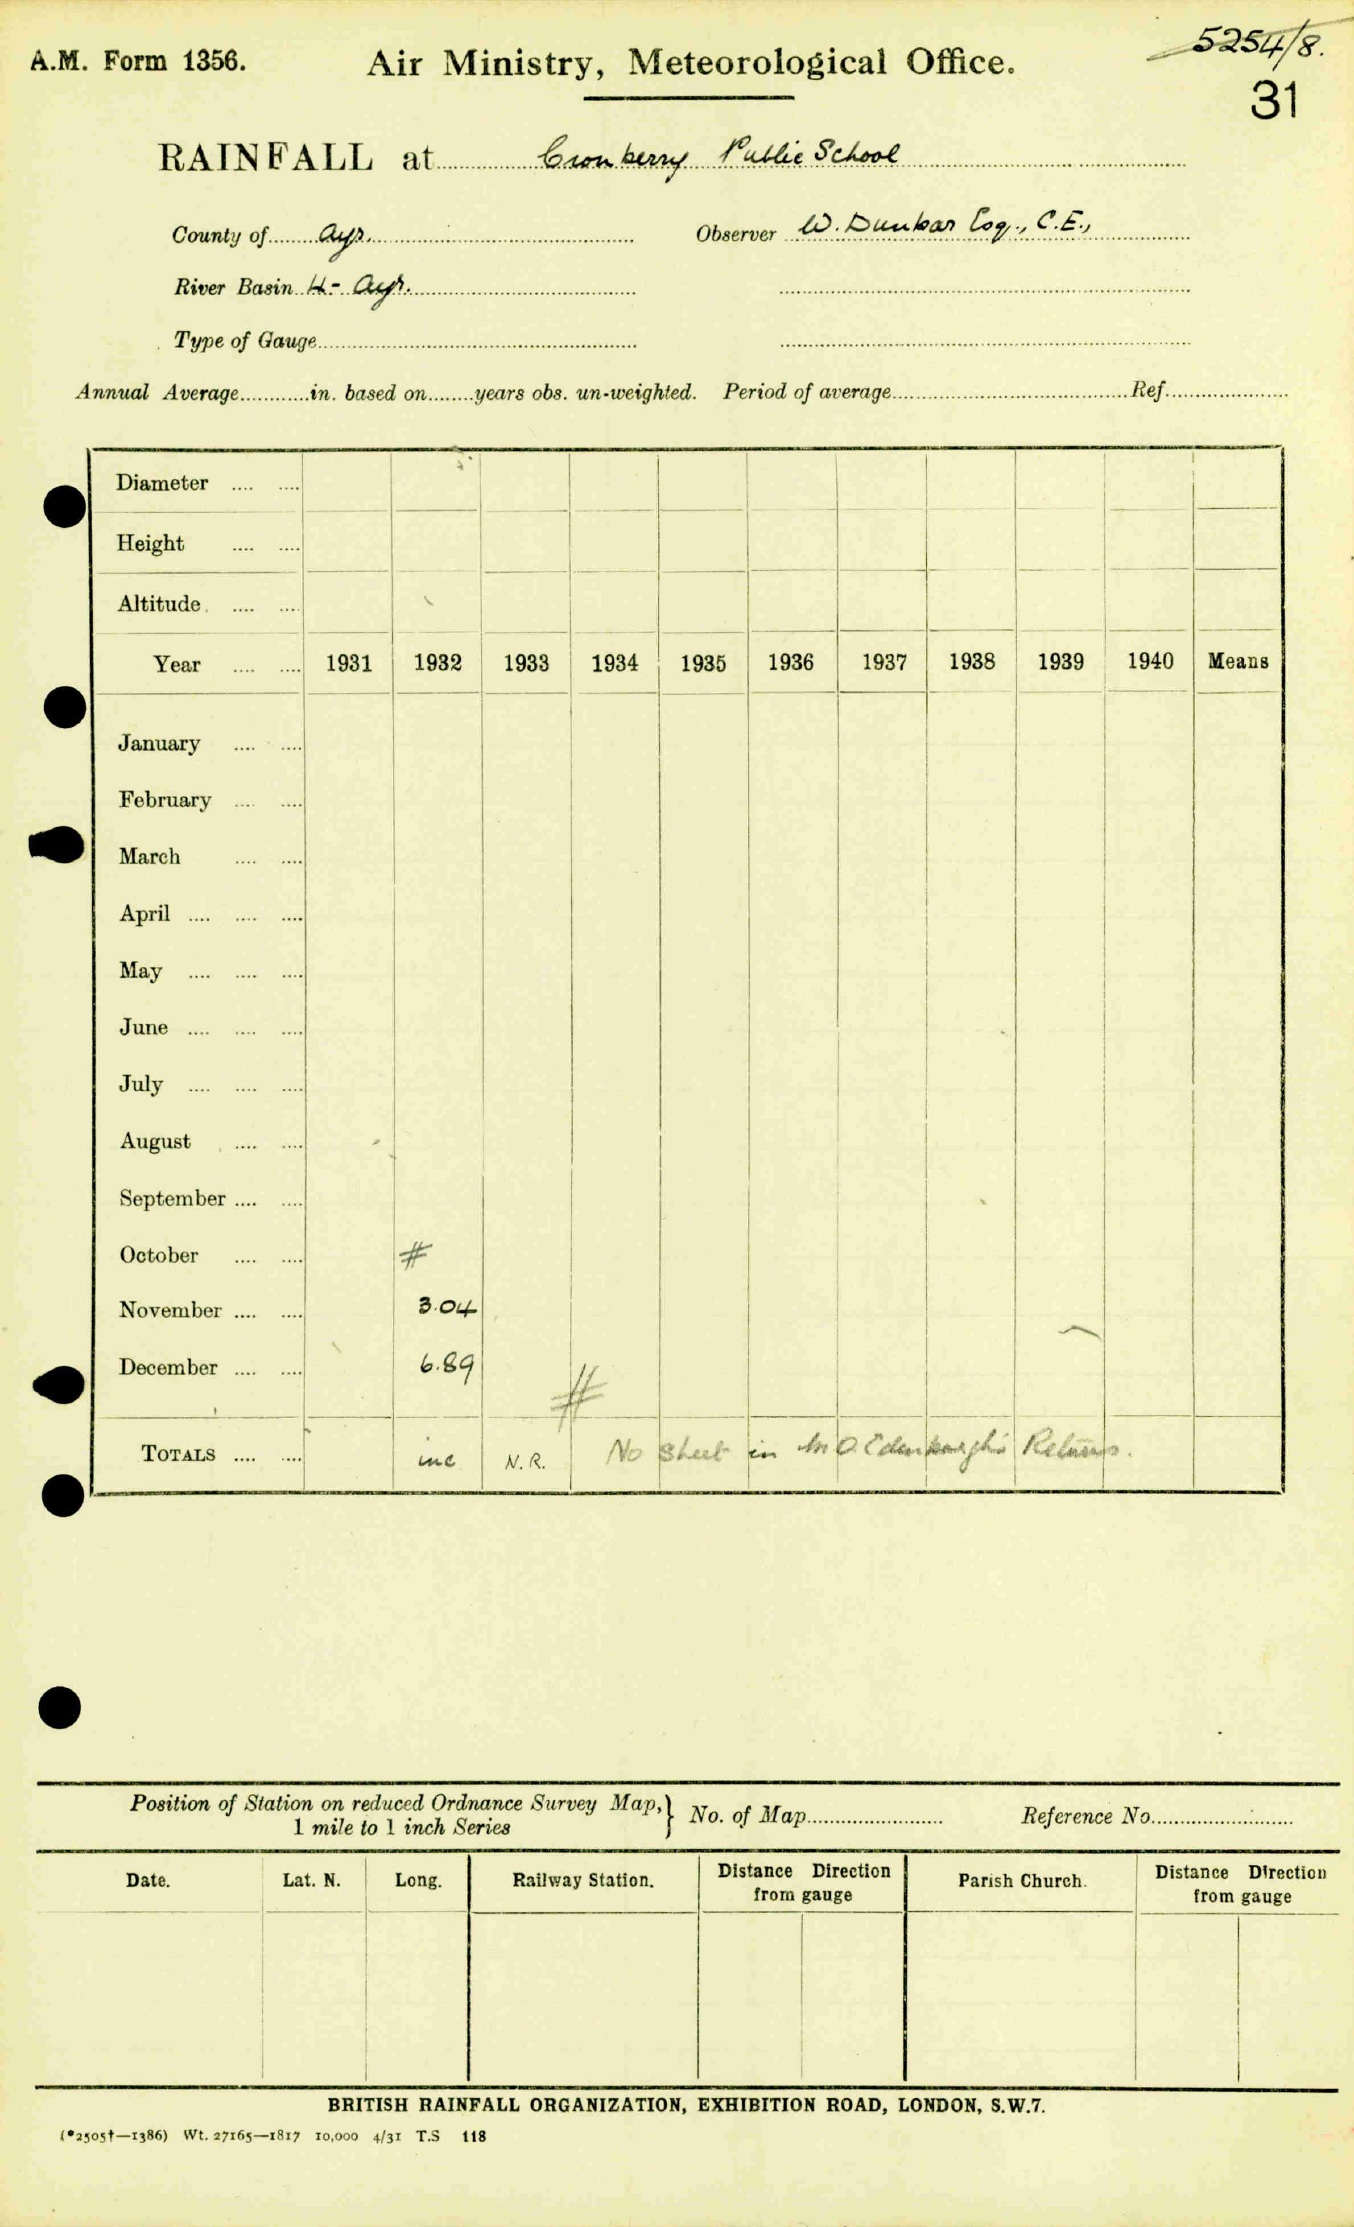 5254/8.
A.M. Form 1356. Air Ministry, Meteorological Office.
31
RAINFALL at Cronberry Public School
County of Ayr. Observer W. Dunbar Esq., C.E.,
River Basin 4- Ayr.
Type of Gauge
Annual Average in. based on years obs. un-weighted. Period of average Ref.
Diameter
Height
Altitude
Year 1931 1932 1933 1934 1935 1936 1937 1938 1939 1940 Means
January
February
March
April
May
June
July
August
September
October #
November 3.04
December 6.89
#
TOTALS inc N.R. No sheet in M.O. Edinburgh's Returns.
Position of Station on reduced Ordnance Survey Map, } No. of Map Reference No.
1 mile to 1 inch Series
Date. Lat. N. Long. Railway Station. Distance Direction Parish Church. Distance Direction
from gauge from gauge
BRITISH RAINFALL ORGANIZATION, EXHIBITION ROAD, LONDON, S.W.7.
(*2505†—1386) Wt. 27165—1817 10,000 4/31 T.S 118